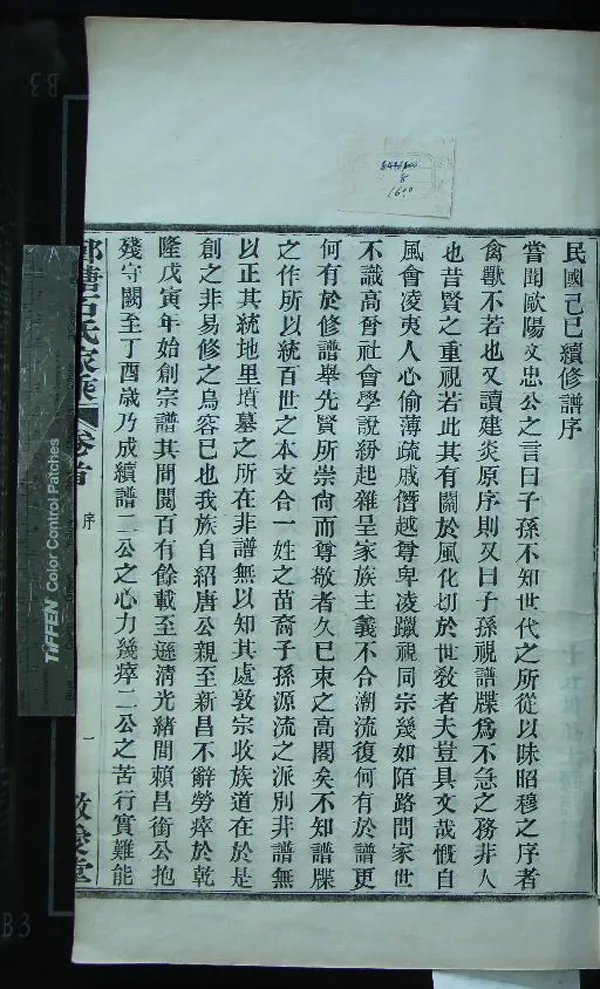 民國己巳續修譜序
嘗聞歐陽文忠公之言曰子孫不知世代之所從以昧昭穆之序者
禽獸不若也又讀建炎原序則又曰子孫視譜牒為不急之務非人
也昔賢之重視若此其有關於風化切於世教者夫豈具文哉慨自
風會凌夷人心偷薄疏戚僭越尊卑凌躐視同宗幾如陌路問家世
不識高曾社會學說紛起雜呈家族主義不合潮流復何有於譜更
何有於修譜舉先賢所崇尙而尊敬者久已束之高閣矣不知譜牒
之作所以統百世之本支合一姓之苗裔子孫源流之派別非譜無
以正其統地里墳墓之所在非譜無以知其處敦宗收族道在於是
創之非易修之烏容已也我族自紹唐公親至新昌不辭勞瘁於乾
隆戊寅年始創宗譜其間閱百有餘載至遜淸光緒間賴昌衙公抱
殘守闕至丁酉歲乃成續譜二公之心力幾瘁二公之苦行實難能
塘石氏家乘 卷首 序 一
TIFFEN Color Control Patches
B3
B3
1600